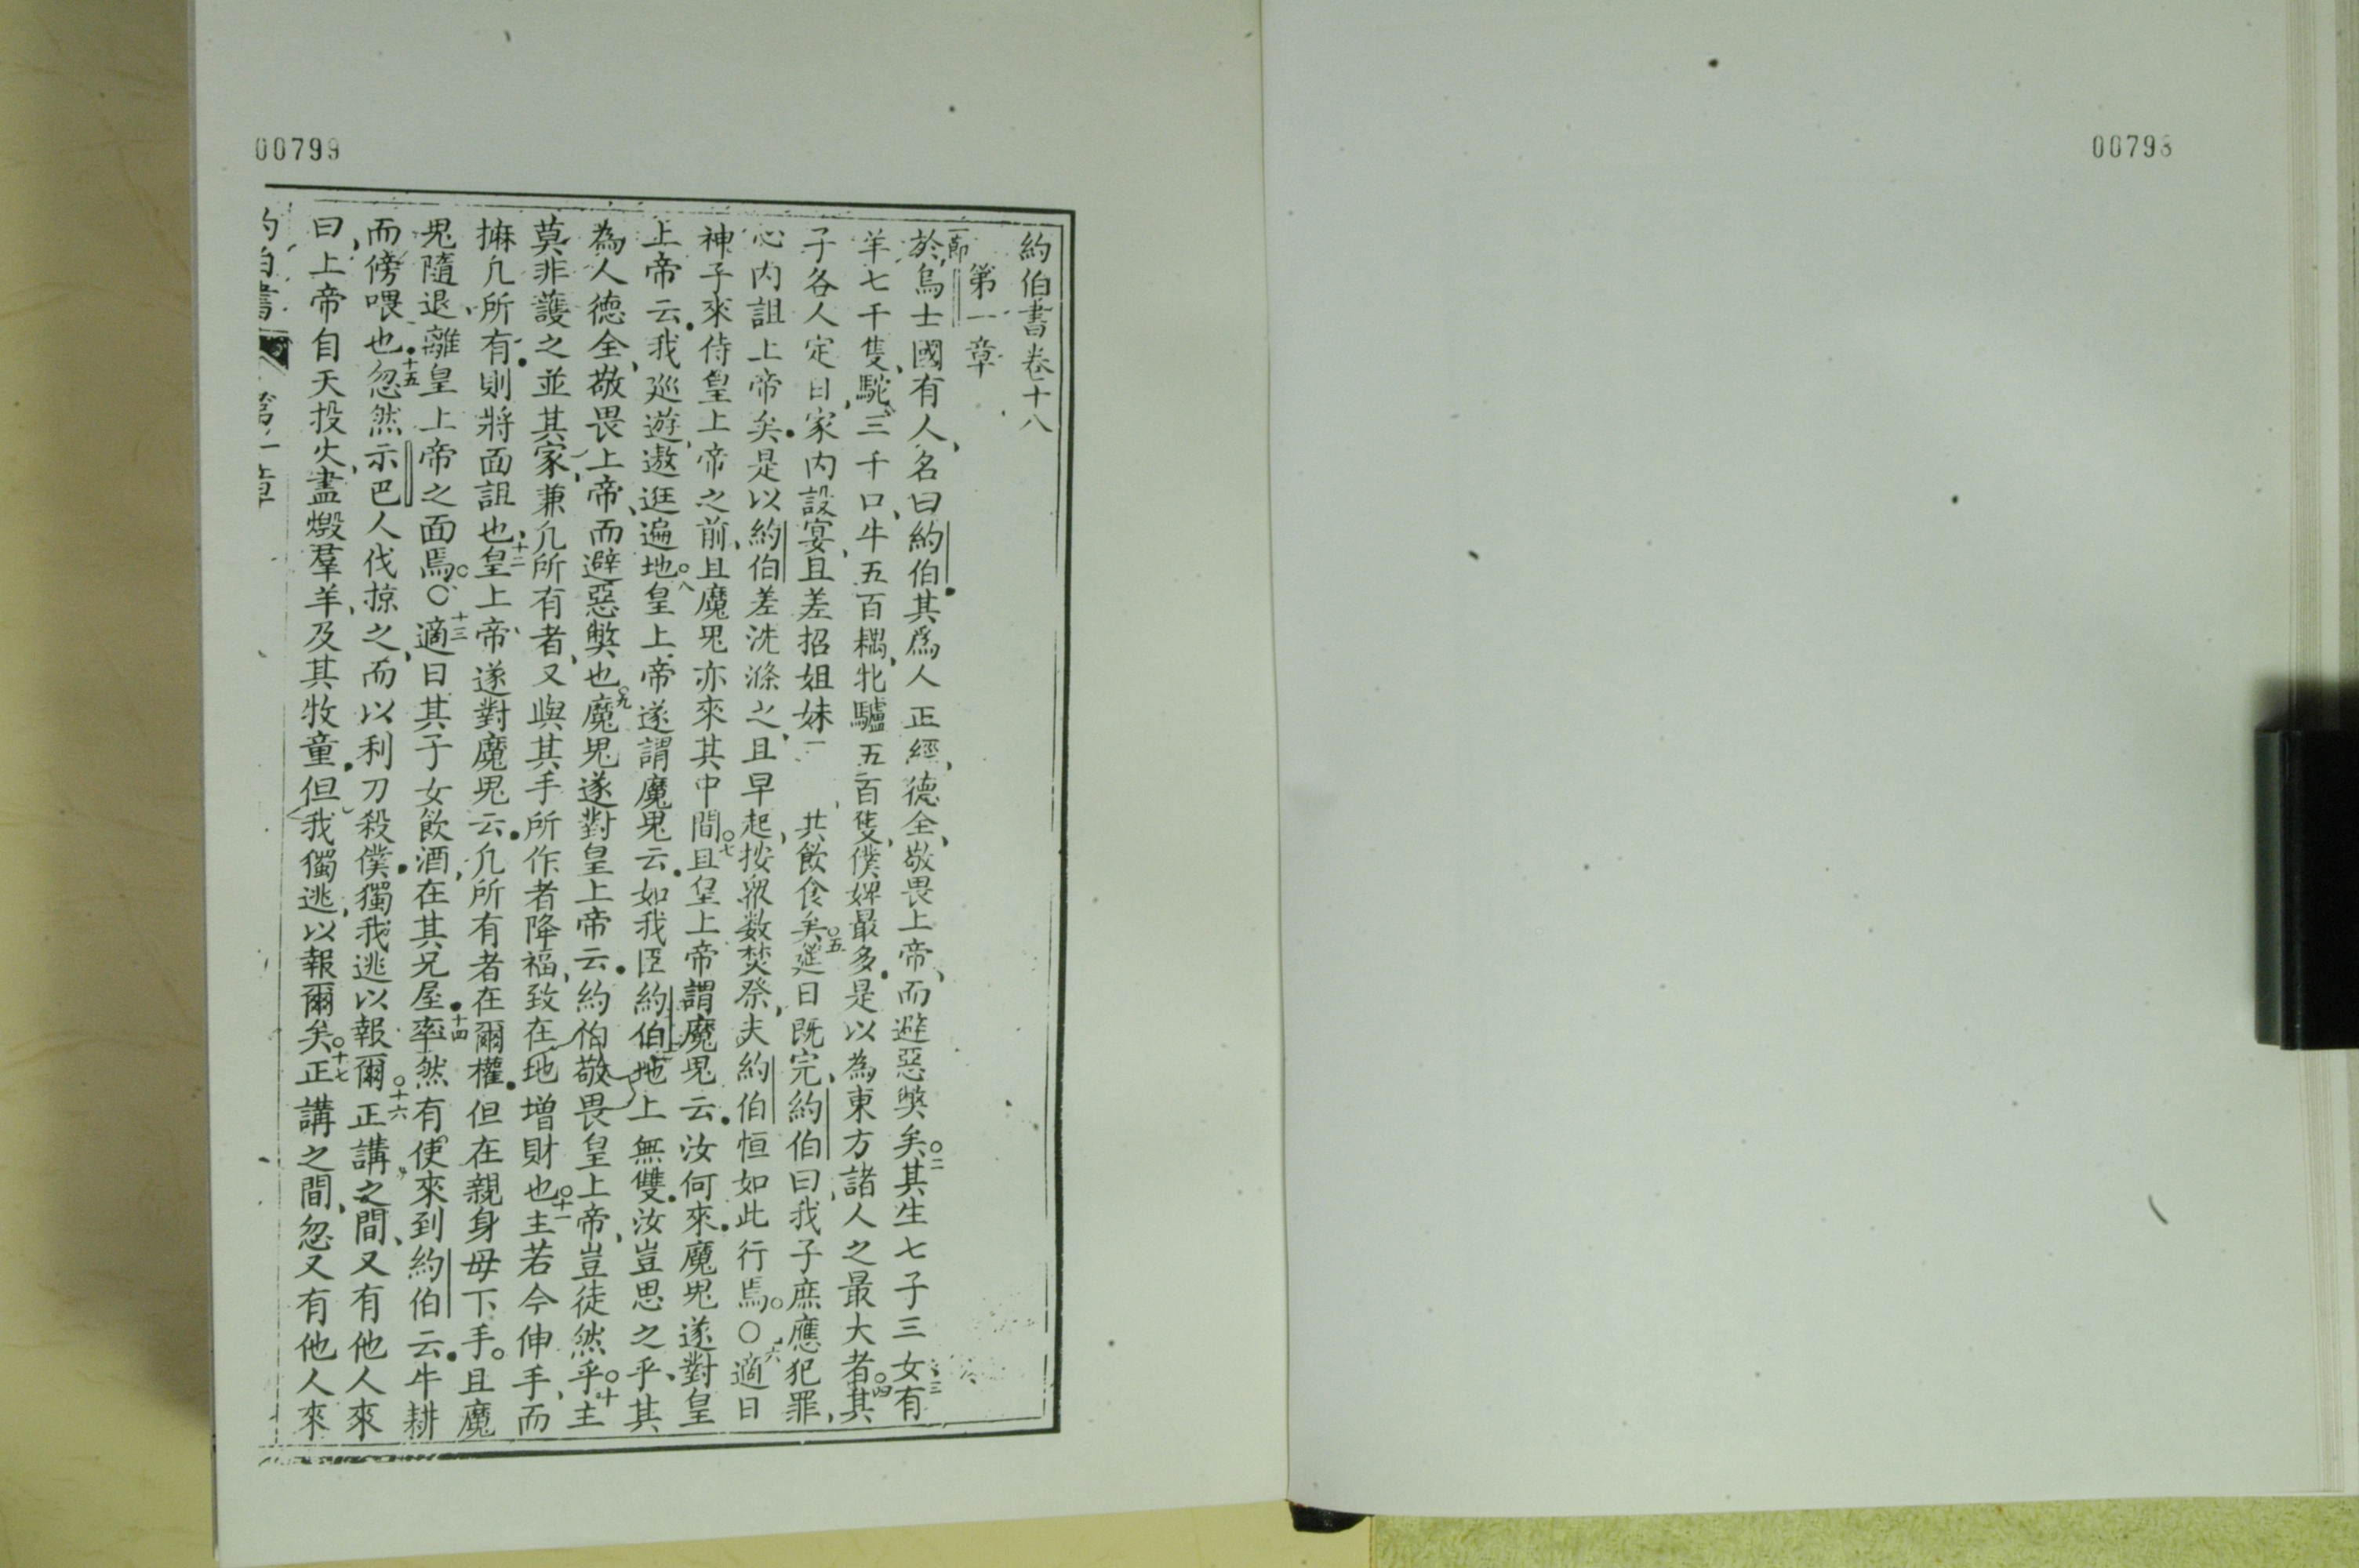 00798
00799
約伯書卷十八
第一章
節於烏士國有人、名曰約伯．其爲人正經、德全、敬畏上帝、而避惡獘矣○二其生七子三女、三有
羊七千隻、駝三千口、牛五百耦、牝驢五百隻、僕婢最多．是以為東方諸人之最大者○四其
子各人定日家內設宴、且差招姐妹 共飲食矣○五筵日既完、約伯曰、我子庶應犯罪、
心內詛上帝矣．是以約伯差洗滌之、且早起、按衆数焚祭、夫約伯恒如此行焉○〇六適日
神子來侍皇上帝之前、且魔鬼亦來其中間○七且皇上帝謂魔鬼云．汝何來．魔鬼遂對皇
上帝云．我廵遊、遨逛遍地○八皇上帝遂謂魔鬼云．如我臣約伯地上無雙．汝豈思之乎、其
為人德全、敬畏上帝、而避惡獘也○九魔鬼遂對皇上帝云．約伯敬畏皇上帝、豈徒然乎○十主
莫非護之並其家、兼凢所有者、又與其手所作者降福、致在地增財也○十一主若今伸手、而
摨凢所有．則將面詛也、十二皇上帝遂對魔鬼云．凢所有者在爾權．但在親身毋下手○且魔
鬼隨退、離皇上帝之面焉○〇十三適日其子女飲酒、在其兄屋．十四率然有使來到約伯云．牛耕
而傍喂也．十五忽然示巴人伐掠之、而以利刀殺僕．獨我逃以報爾○十六正講之間、又有他人來
曰、上帝自天投火、盡燬羣羊、及其牧童．但我獨逃、以報爾矣○十七正講之間、忽又有他人來
約伯書 第一章